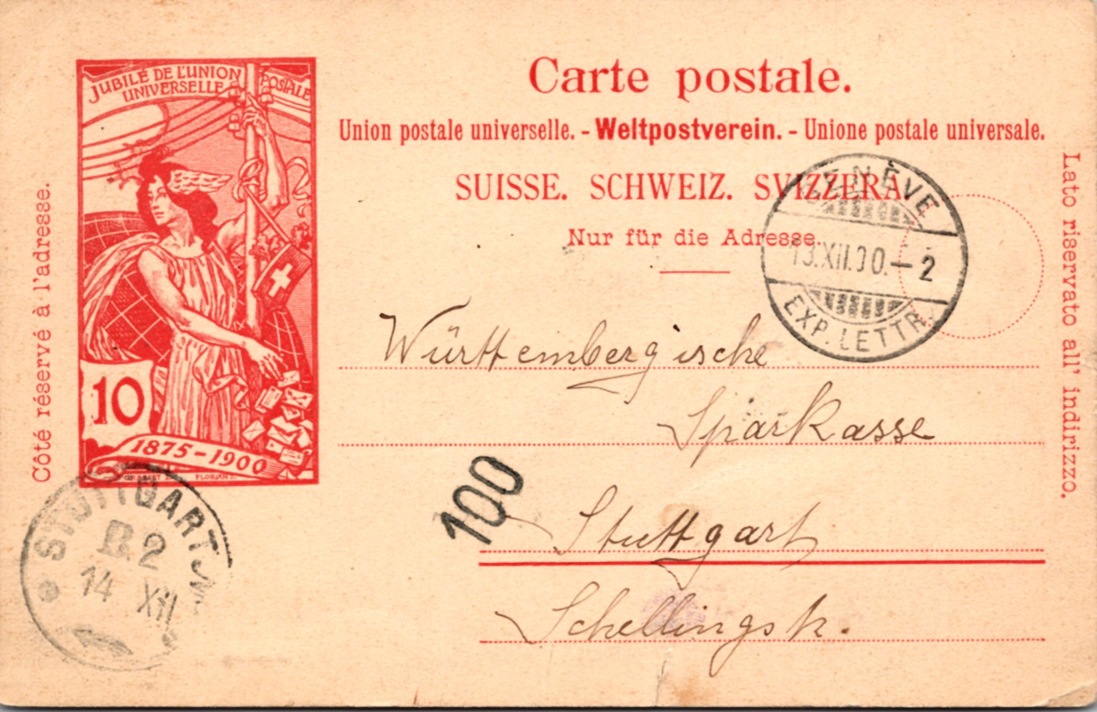 JUBILÉ DE L'UNION POSTALE
UNIVERSELLE
10
1875-1900
Carte postale.
Union postale universelle. - Weltpostverein. - Unione postale universale.
SUISSE. SCHWEIZ. SVIZZERA.
Nur für die Adresse.
Côté réservé à l'adresse.
Lato riservato all' indirizzo.
GENÈVE
13.XII.00.-2
EXP. LETTR.
Württembergische
Sparkasse
Stuttgart
Schellingstr.
100
STUTTGART
B.2
14 XII